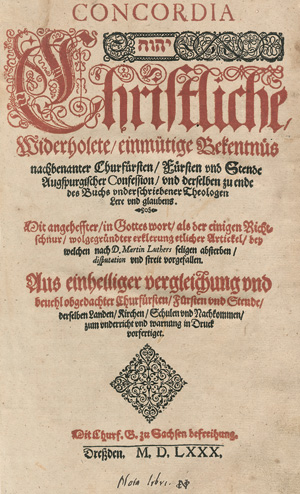 CONCORDIA
יהוה
Christliche,
Widerholete / einmütige Bekentnüs
nachbenanter Churfürsten / Fürsten vnd Stende
Augspurgischer Confession / vnd derselben zu ende
des Buchs vnderschriebener Theologen
Lere vnd glaubens.
Mit angeheffter / in Gottes wort / als der einigen Richt-
schnur / wolgegründter erklerung etlicher Artickel / bey
welchen nach D. Martin Luthers seligen absterben /
disputation vnd streit vorgefallen.
Aus einhelliger vergleichung vnd
beuehl obgedachter Churfürsten / Fürsten vnd Stende /
derselben Landen / Kirchen / Schulen vnd Nachkommen /
zum vnderricht vnd warnung in Druck
vorfertiget.
Mit Churf. G. zu Sachsen befreihung.
Dreßden. M. D. LXXX.